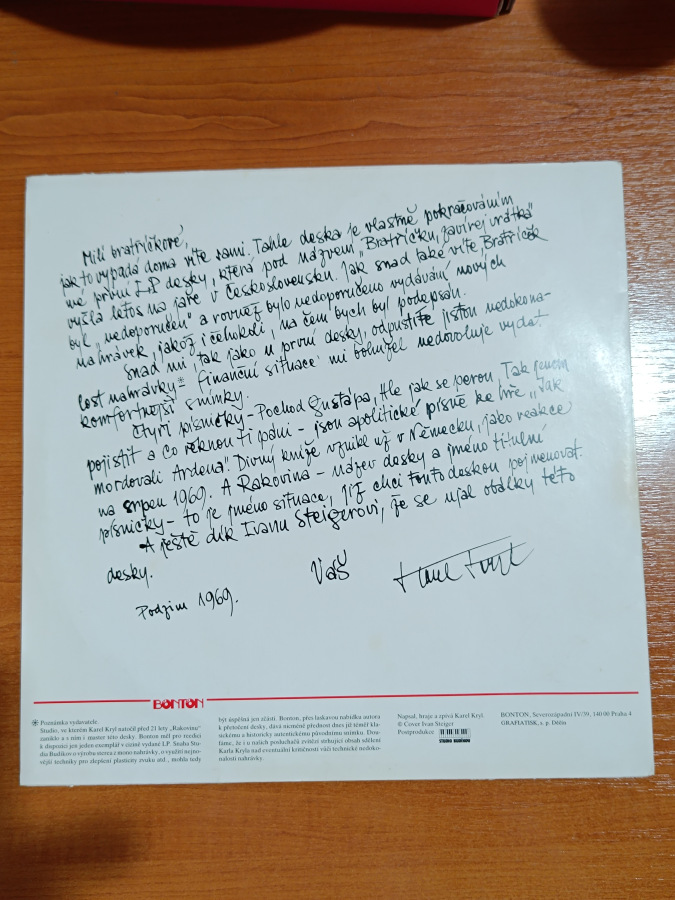 Milí bratříčkové,
jak to vypadá doma víte sami. Tahle deska je vlastně pokračováním
mé první LP desky, která pod názvem „Bratříčku, zavírej vrátka"
vyšla letos na jaře v Československu. Jak snad také víte Bratříček
byl „nedoporučen" a rovněž bylo nedoporučeno vydávání nových
nahrávek, jakož i čehokoli, na čem bych byl podepsán.
Snad mi, tak jako u první desky, odpustíte jistou nedokona-
lost nahrávky* finanční situace mi bohužel nedovoluje vydat
komfortnější snímky.
Čtyři písničky - Pochod Gustápa, Hle jak se perou, Tak jenom
pojistit a Co řeknou ti páni - jsou apolitické písně ke hře „Jak
mordovali Ardena". Divný kníže vznikl už v Německu, jako reakce
na srpen 1969. A Rakovina - název desky a jméno titulní
písničky - to je jméno situace, jíž chci touto deskou pojmenovat.
A ještě dík Ivanu Steigerovi, že se ujal obálky této
desky.
Váš Karel Kryl
Podzim 1969.
BONTON
* Poznámka vydavatele.
Studio, ve kterém Karel Kryl natočil před 21 lety „Rakovinu"
zaniklo a s ním i master této desky. Bonton měl pro reedici
k disposici jen jeden exemplář v cizině vydané LP. Snaha Stu-
dia Budíkov o výrobu stereo z mono nahrávky, o využití nejno-
vější techniky pro zlepšení plasticity zvuku atd., mohla tedy
být úspěšná jen zčásti. Bonton, přes laskavou nabídku autora
k přetočení desky, dává nicméně přednost dnes již téměř kla-
sickému a historicky autentickému původnímu snímku. Dou-
fáme, že i u našich posluchačů zvítězí strhující obsah sdělení
Karla Kryla nad eventuální kritičností vůči technické nedoko-
nalosti nahrávky.
Napsal, hraje a zpívá Karel Kryl.
© Cover Ivan Steiger
Postprodukce
STUDIO BUDÍKOV
BONTON, Severozápadní IV/39, 140 00 Praha 4
GRAFIATISK, s. p. Děčín